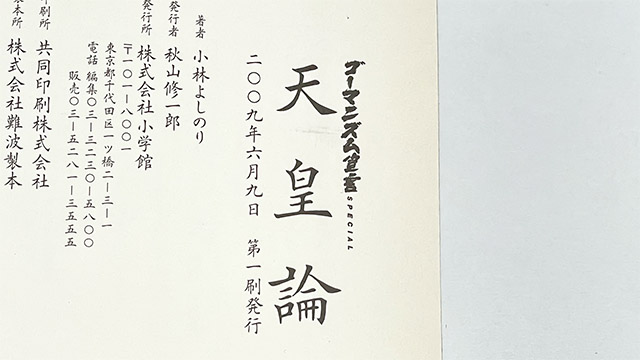 ゴーマニズム宣言SPECIAL
天皇論
二〇〇九年六月九日 第一刷発行
著者 小林よしのり
発行者 秋山修一郎
発行所 株式会社小学館
〒一〇一-八〇〇一
東京都千代田区一ツ橋二-三-一
電話 編集〇三-三二三〇-五八〇〇
販売〇三-五二八一-三五五五
印刷所 共同印刷株式会社
製本所 株式会社難波製本